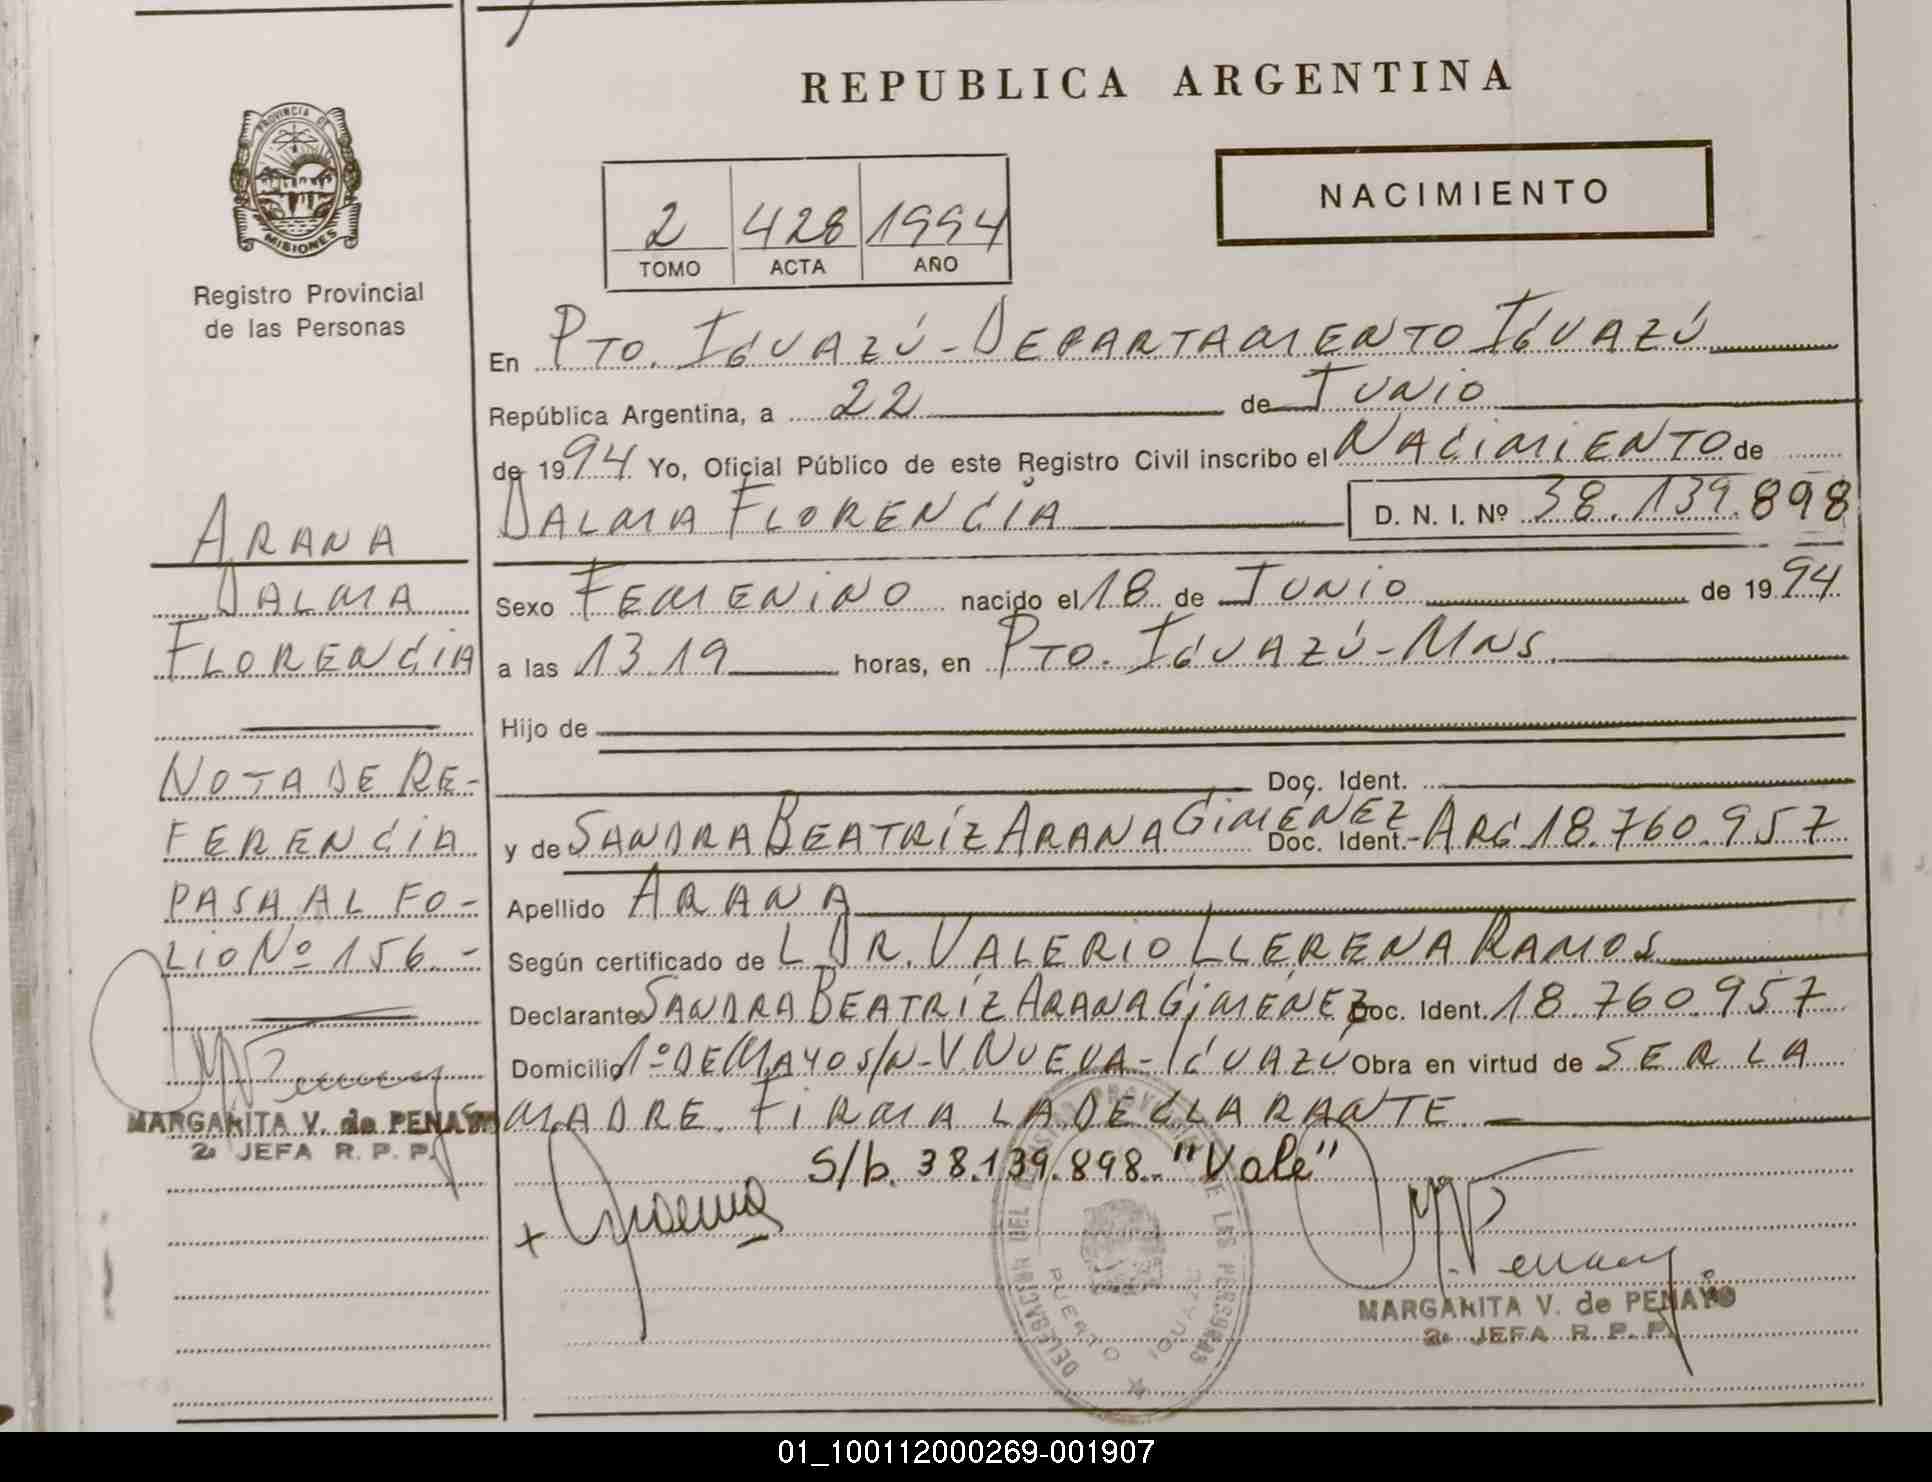 REPUBLICA ARGENTINA
PROVINCIA DE
MISIONES
Registro Provincial
de las Personas
NACIMIENTO
2 428 1994
TOMO ACTA AÑO
En PTO. IGUAZÚ - DEPARTAMENTO IGUAZÚ
República Argentina, a 22 de JUNIO
de 1994 Yo, Oficial Público de este Registro Civil inscribo el NACIMIENTO de
DALMA FLORENCIA D. N. I. Nº 38.139.898
Sexo FEMENINO nacido el 18 de JUNIO de 1994
a las 13.19 horas, en PTO. IGUAZÚ - MNS.
Hijo de
Doc. Ident.
y de SANDRA BEATRÍZ ARANA GIMÉNEZ Doc. Ident.- ARG 18.760.957
Apellido ARANA
Según certificado de L DR. VALERIO LLERENA RAMOS
Declarante SANDRA BEATRÍZ ARANA GIMÉNEZ Doc. Ident. 18.760.957
Domicilio 1º DE MAYO S/N - V. NUEVA - IGUAZÚ Obra en virtud de SER LA
MADRE. FIRMA LA DECLARANTE.
S/b. 38.139.898.- "Vale"
ARANA
DALMA
FLORENCIA
NOTA DE RE-
FERENCIA
PASA AL FO-
LIO Nº 156.-
MARGARITA V. de PENAYO
2ª JEFA R. P. P.
DELEGACION DEL REGISTRO PROVINCIAL DE LAS PERSONAS
PUERTO IGUAZU
MARGARITA V. de PENAYO
2ª JEFA R. P. P.
01_100112000269-001907